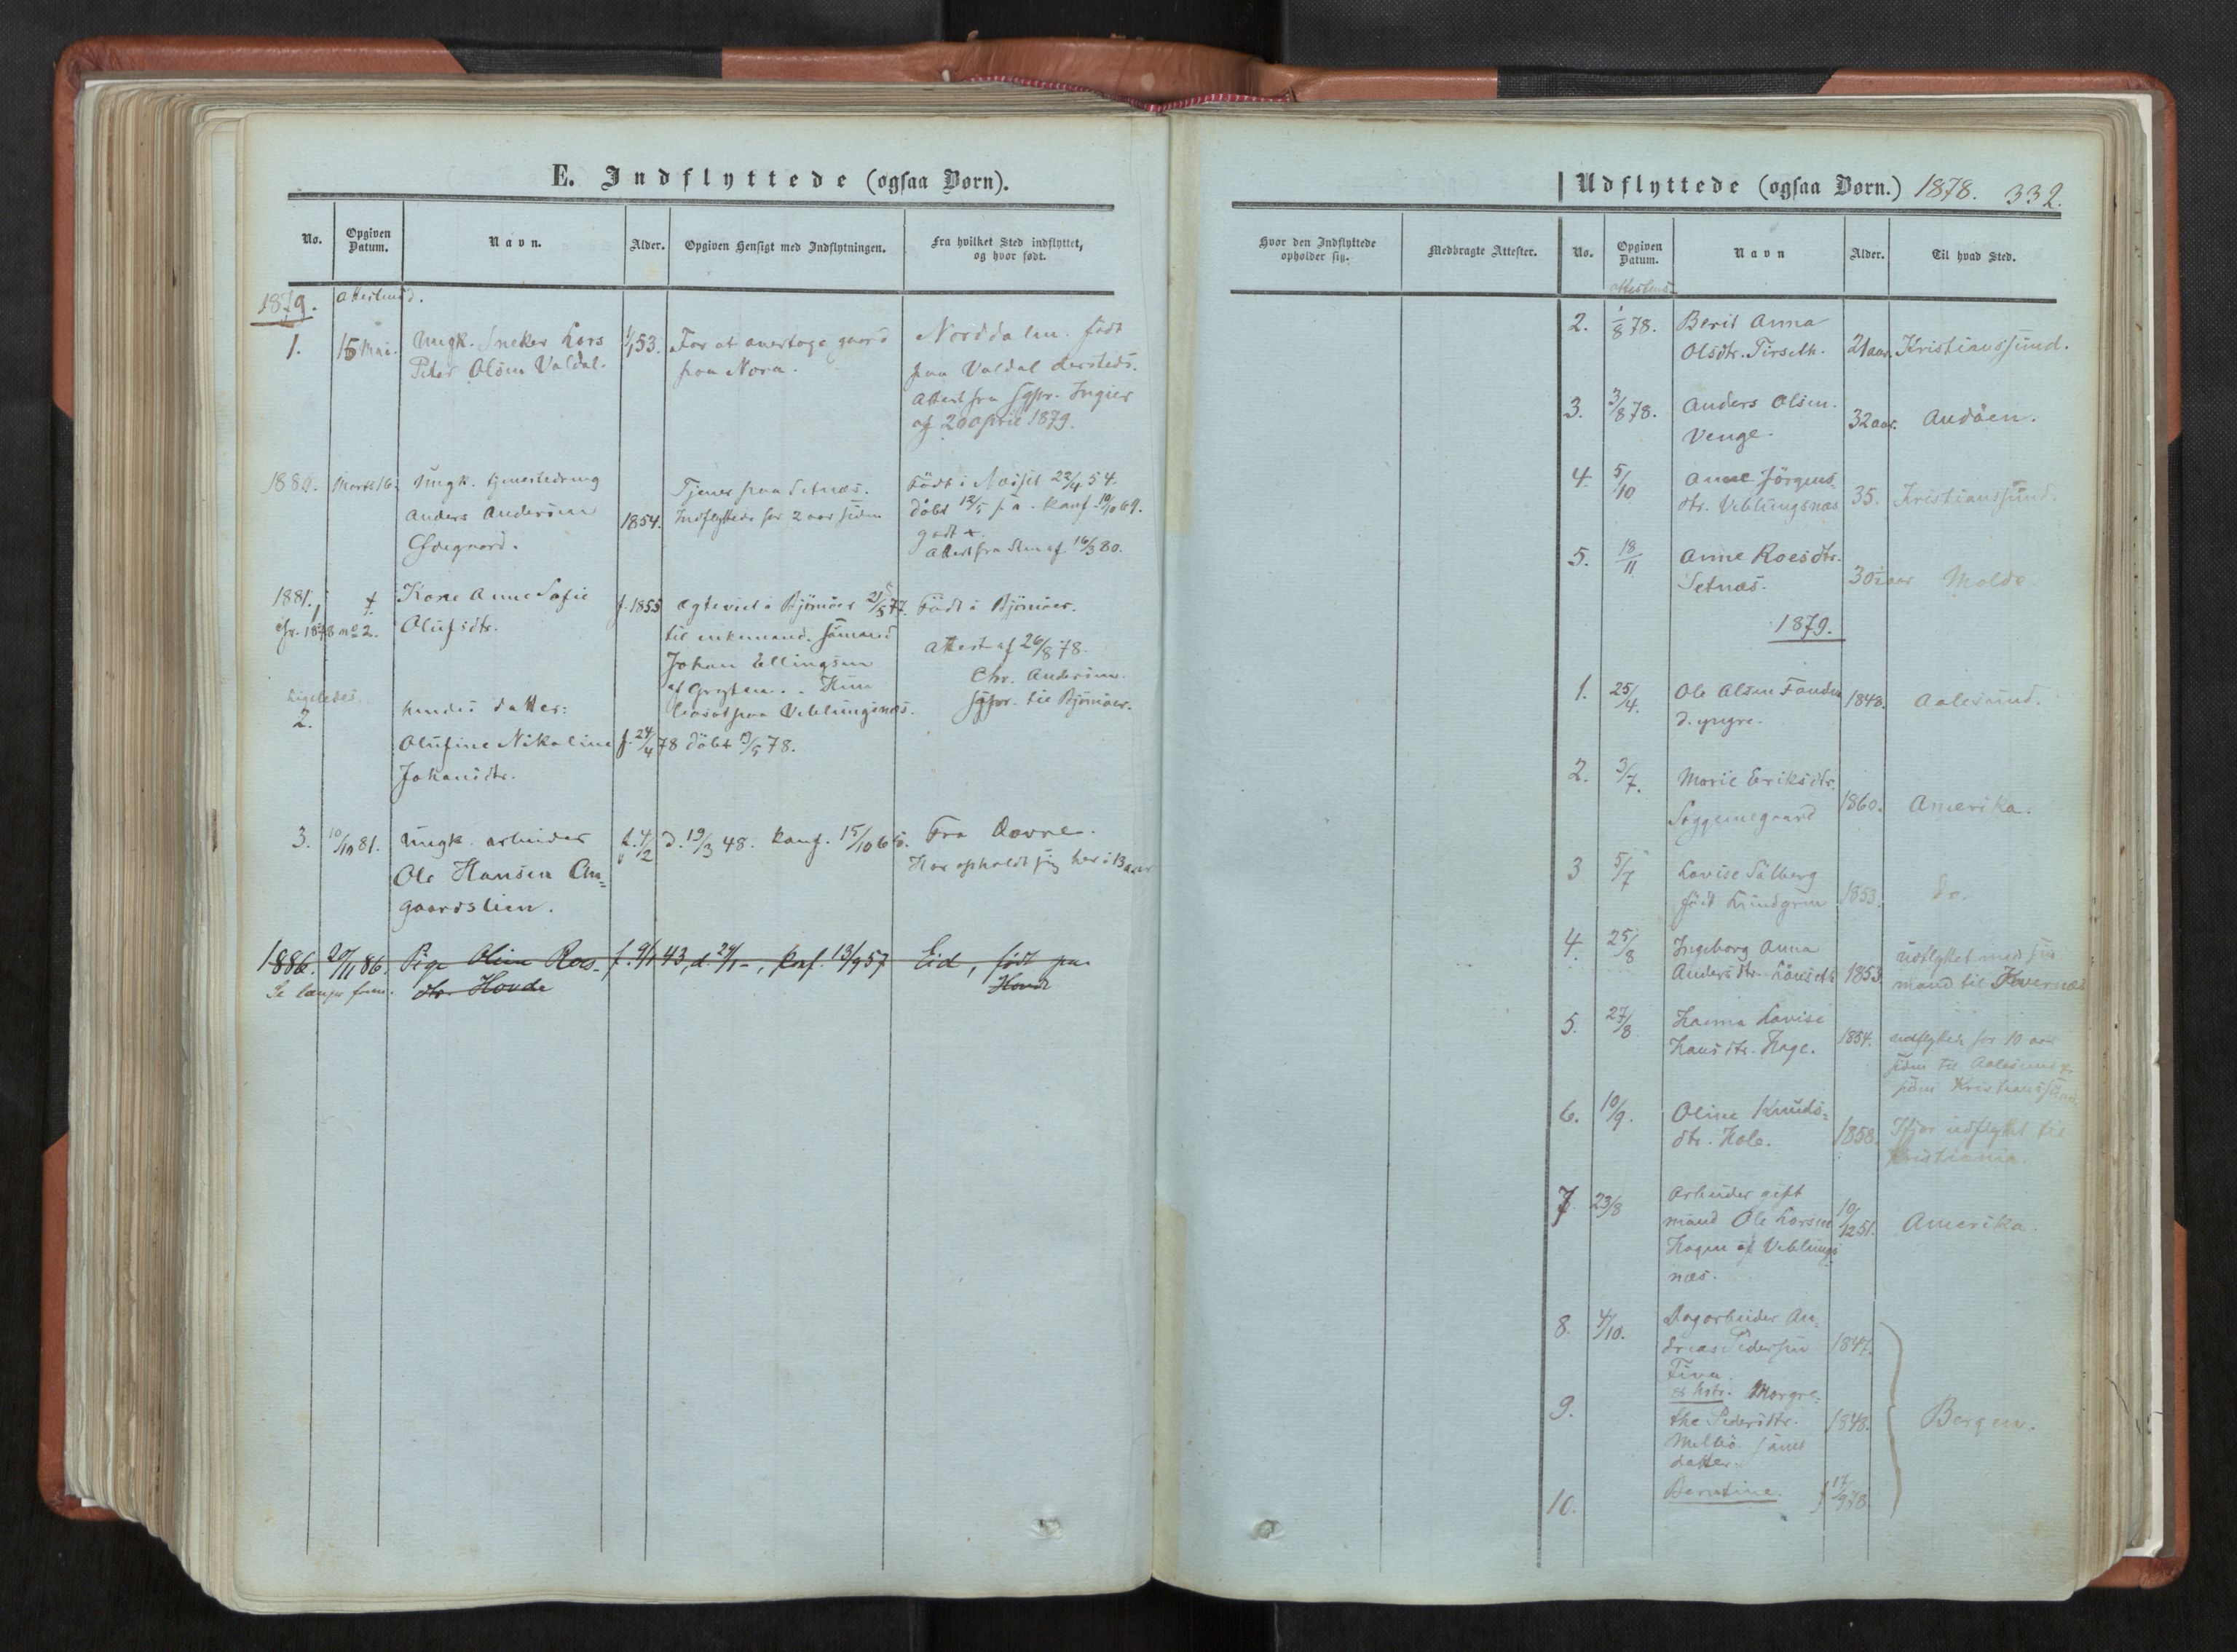 E. Indflyttede (ogsaa Børn).
No.
Opgiven
Datum.
Navn.
Alder.
Opgiven Hensigt med Indflytningen.
Fra hvilket Sted indflyttet,
og hvor født.
1879.
1.
15 Mai.
Ungk. Sneker Lars
Peter Olsen Valdal.
1/1 53.
For at overtage gaard
paa Nora.
Norddalen. født
paa Valdal dersteds.
Attest fra sgpr. Ingier
af 20 April 1879.
1880.
Marts 16.
Ungk. tjenestedreng
Anders Andersen
1854.
Tjener paa Setnæs.
Indflyttede for 2 aar siden
Født i Nesset 22/4 54.
døbt 12/5 s. a. konf. 10/10 69.
godt
Attest fra den af 16/3 80.
1881.
1
cfr. 1878 no 2.
Kare Anne Sofie
Olufsdtr.
f. 1855
Ægteviet i Bjørnør 21/5 77.
til enkemand. sømand
Johan Ellingsen
af Grytten. Hun
bosat paa Veblungsnæs.
Født i Bjørnør.
Attest af 26/8 78.
Chr. Andersen.
sgpr. til Bjørnør.
Ligeledes
2.
hendes datter:
Olufine Nikoline
Johansdtr.
f. 24/4 78 døbt 9/5 78.
3.
10/10 81.
Ungk. arbeider
Ole Hansen An=
gaardslien.
f. 4/2
d. 19/3 48. konf. 15/10 65.
Fra Dovre.
Har opholdt sig her i 13 aar
1886.
20/11 86.
Pige Oline Roes-
dtr. Hovde
f. 9/1 43, d. 24/1 -, konf. 13/9 57
Eid, født paa
Hovde
Se længer frem.
Udflyttede (ogsaa Børn.) 1878. 332.
Hvor den Indflyttede
opholder sig.
Medbragte Attester.
No.
Opgiven
Datum.
Navn
Alder.
Til hvad Sted.
2.
1/8 78.
Berit Anna
Olsdtr. Tirseth.
21 aar.
Kristianssund.
3.
3/8 78.
Anders Olsen.
Venge.
32 aar.
Andøen.
4.
5/10
Anne Jørgens
dtr. Veblungsnæs
35.
Kristianssund.
5.
18/11
Anne Roesdtr.
Setnæs.
30½ aar
Molde
1879.
1.
25/4.
Ole Olsen
d. yngre.
1840.
Aalesund.
2.
3/7.
Marie Eriksdtr.
Soggemogaard
1860.
Amerika.
3
5/7
Lovise Sølberg
født Lindgren
1853.
do.
4.
25/8
Ingeborg Anna
Andersdtr.
1853
udflyttet med sin
mand til Kvernæs
5.
27/8
Hanna Lovise
Hansdtr. Hage.
1854.
udflyttede for 10 aar
siden til Aalesund &
siden Kristianssund
6.
10/9.
Oline Knuds=
dtr. Hole.
1858.
Ifjor udflyttet til
Kristiania.
7
23/8
Arbeider gift
mand Ole Larsen
Hagen af Veblungs
næs.
10/12 51.
Amerika.
8.
4/10.
Dagarbeider An=
dreas Pedersen
Fiva.
1847.
9.
& hstr. Margre=
the Pedersdtr.
samt
datter
1848.
Bergen.
10.
Berntine.
f 17/9 78.